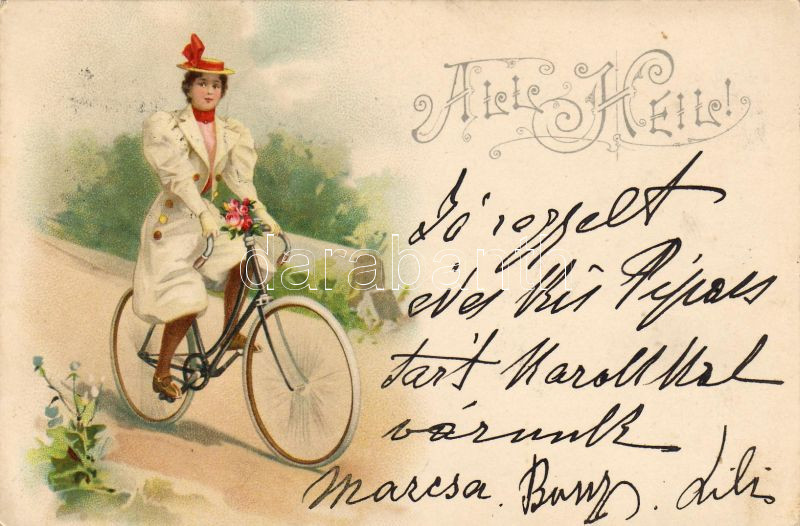 ALL HEIL!
Jó reggelt
édes kis Pipacs
tárt karokkal
várunk
Marcsa. Bunz. Lili
darabanth